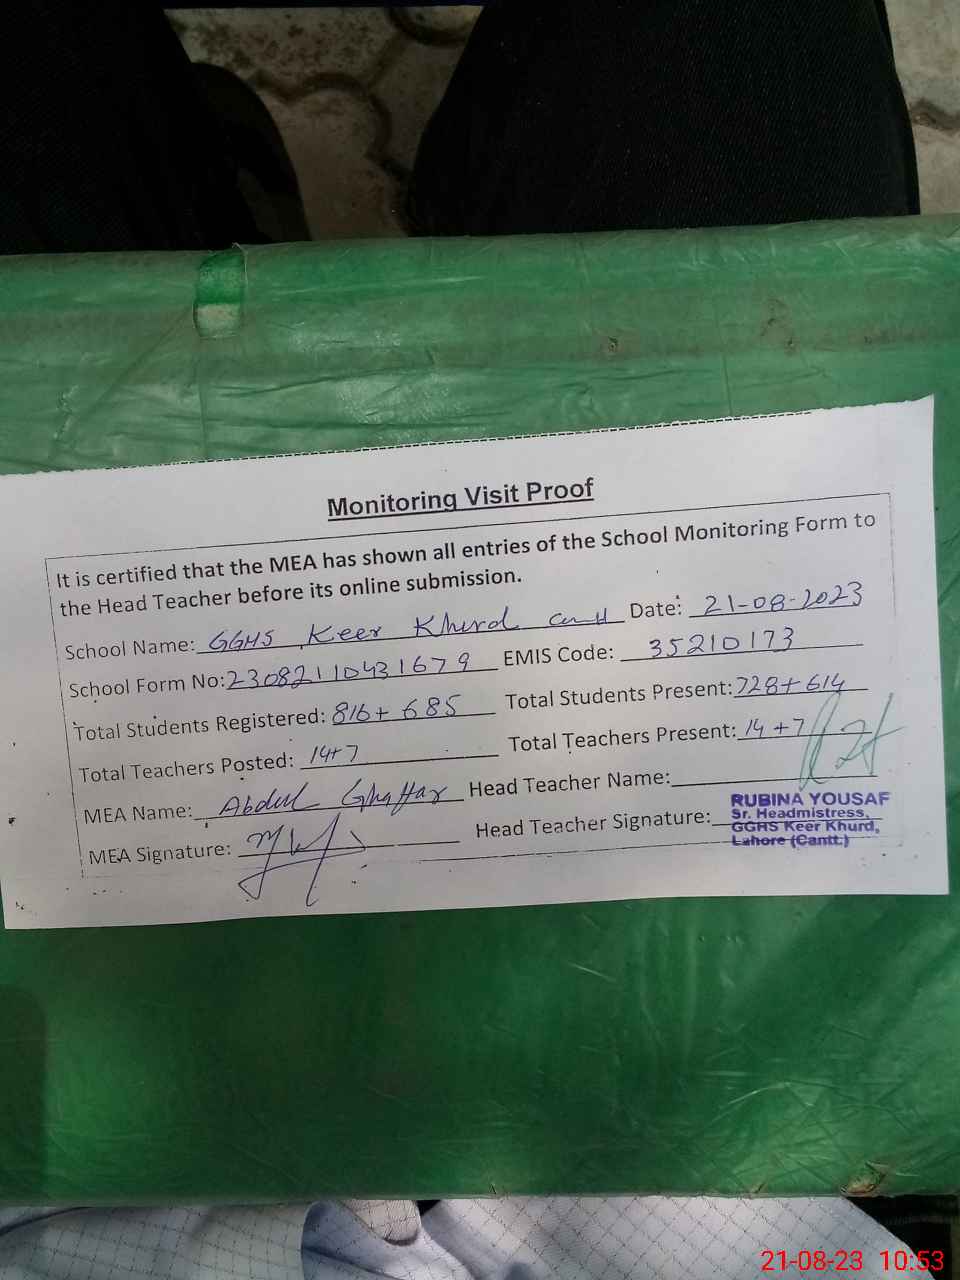 Monitoring Visit Proof
It is certified that the MEA has shown all entries of the School Monitoring Form to
the Head Teacher before its online submission.
School Name: GGHS Keer Khurd Cantt Date: 21-08-2023
School Form No: 23082110431679 EMIS Code: 35210173
Total Students Registered: 816+ 685 Total Students Present: 728+614
Total Teachers Posted: 14+7 Total Teachers Present: 14+7
MEA Name: Abdul Ghaffar Head Teacher Name:
MEA Signature: Head Teacher Signature:
RUBINA YOUSAF
Sr. Headmistress,
GGHS Keer Khurd,
Lahore (Cantt.)
21-08-23 10:53